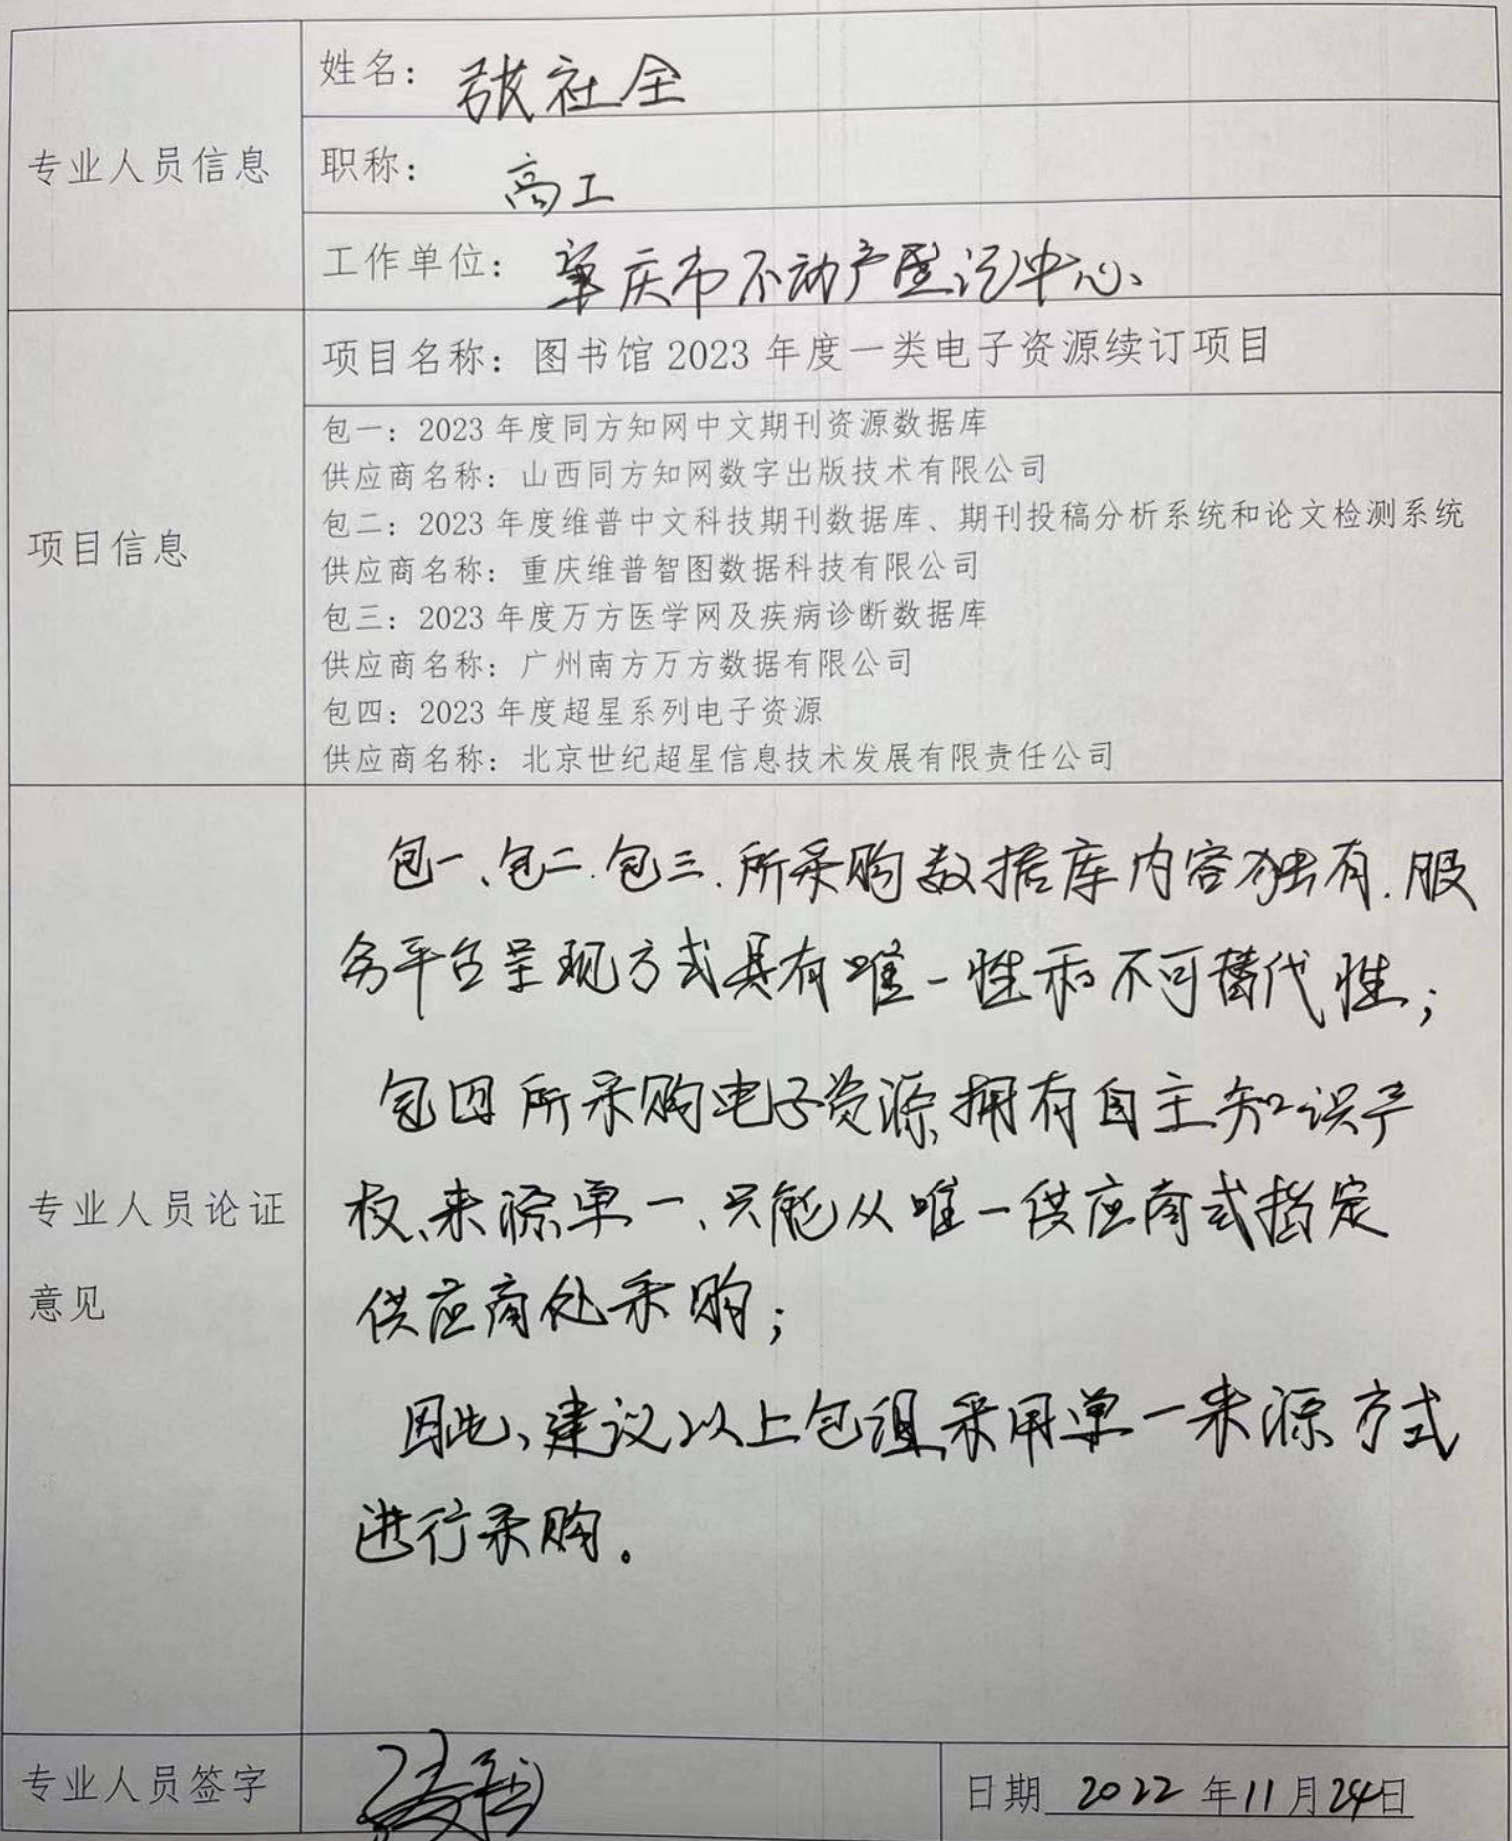 姓名：张社全
专业人员信息
职称：高工
工作单位：肇庆市不动产登记中心
项目名称：图书馆2023年度一类电子资源续订项目
项目信息
包一：2023年度同方知网中文期刊资源数据库
供应商名称：山西同方知网数字出版技术有限公司
包二：2023年度维普中文科技期刊数据库、期刊投稿分析系统和论文检测系统
供应商名称：重庆维普智图数据科技有限公司
包三：2023年度万方医学网及疾病诊断数据库
供应商名称：广州南方万方数据有限公司
包四：2023年度超星系列电子资源
供应商名称：北京世纪超星信息技术发展有限责任公司
专业人员论证
意见
包一、包二、包三、所采购数据库内容独有，服
务平台呈现方式具有唯一性和不可替代性；
包四所采购电子资源，拥有自主知识产
权、来源单一、只能从唯一供应商或指定
供应商处采购；
因此、建议以上包组采用单一来源方式
进行采购。
专业人员签字
日期 2022年11月24日